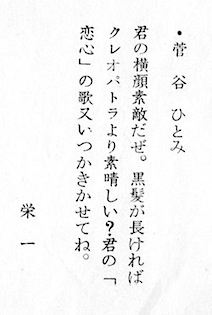 ・菅谷ひとみ
君の横顔素敵だぜ。黒髪が長ければ
クレオパトラより素晴しい?君の「
恋心」の歌又いつかきかせてね。
栄一